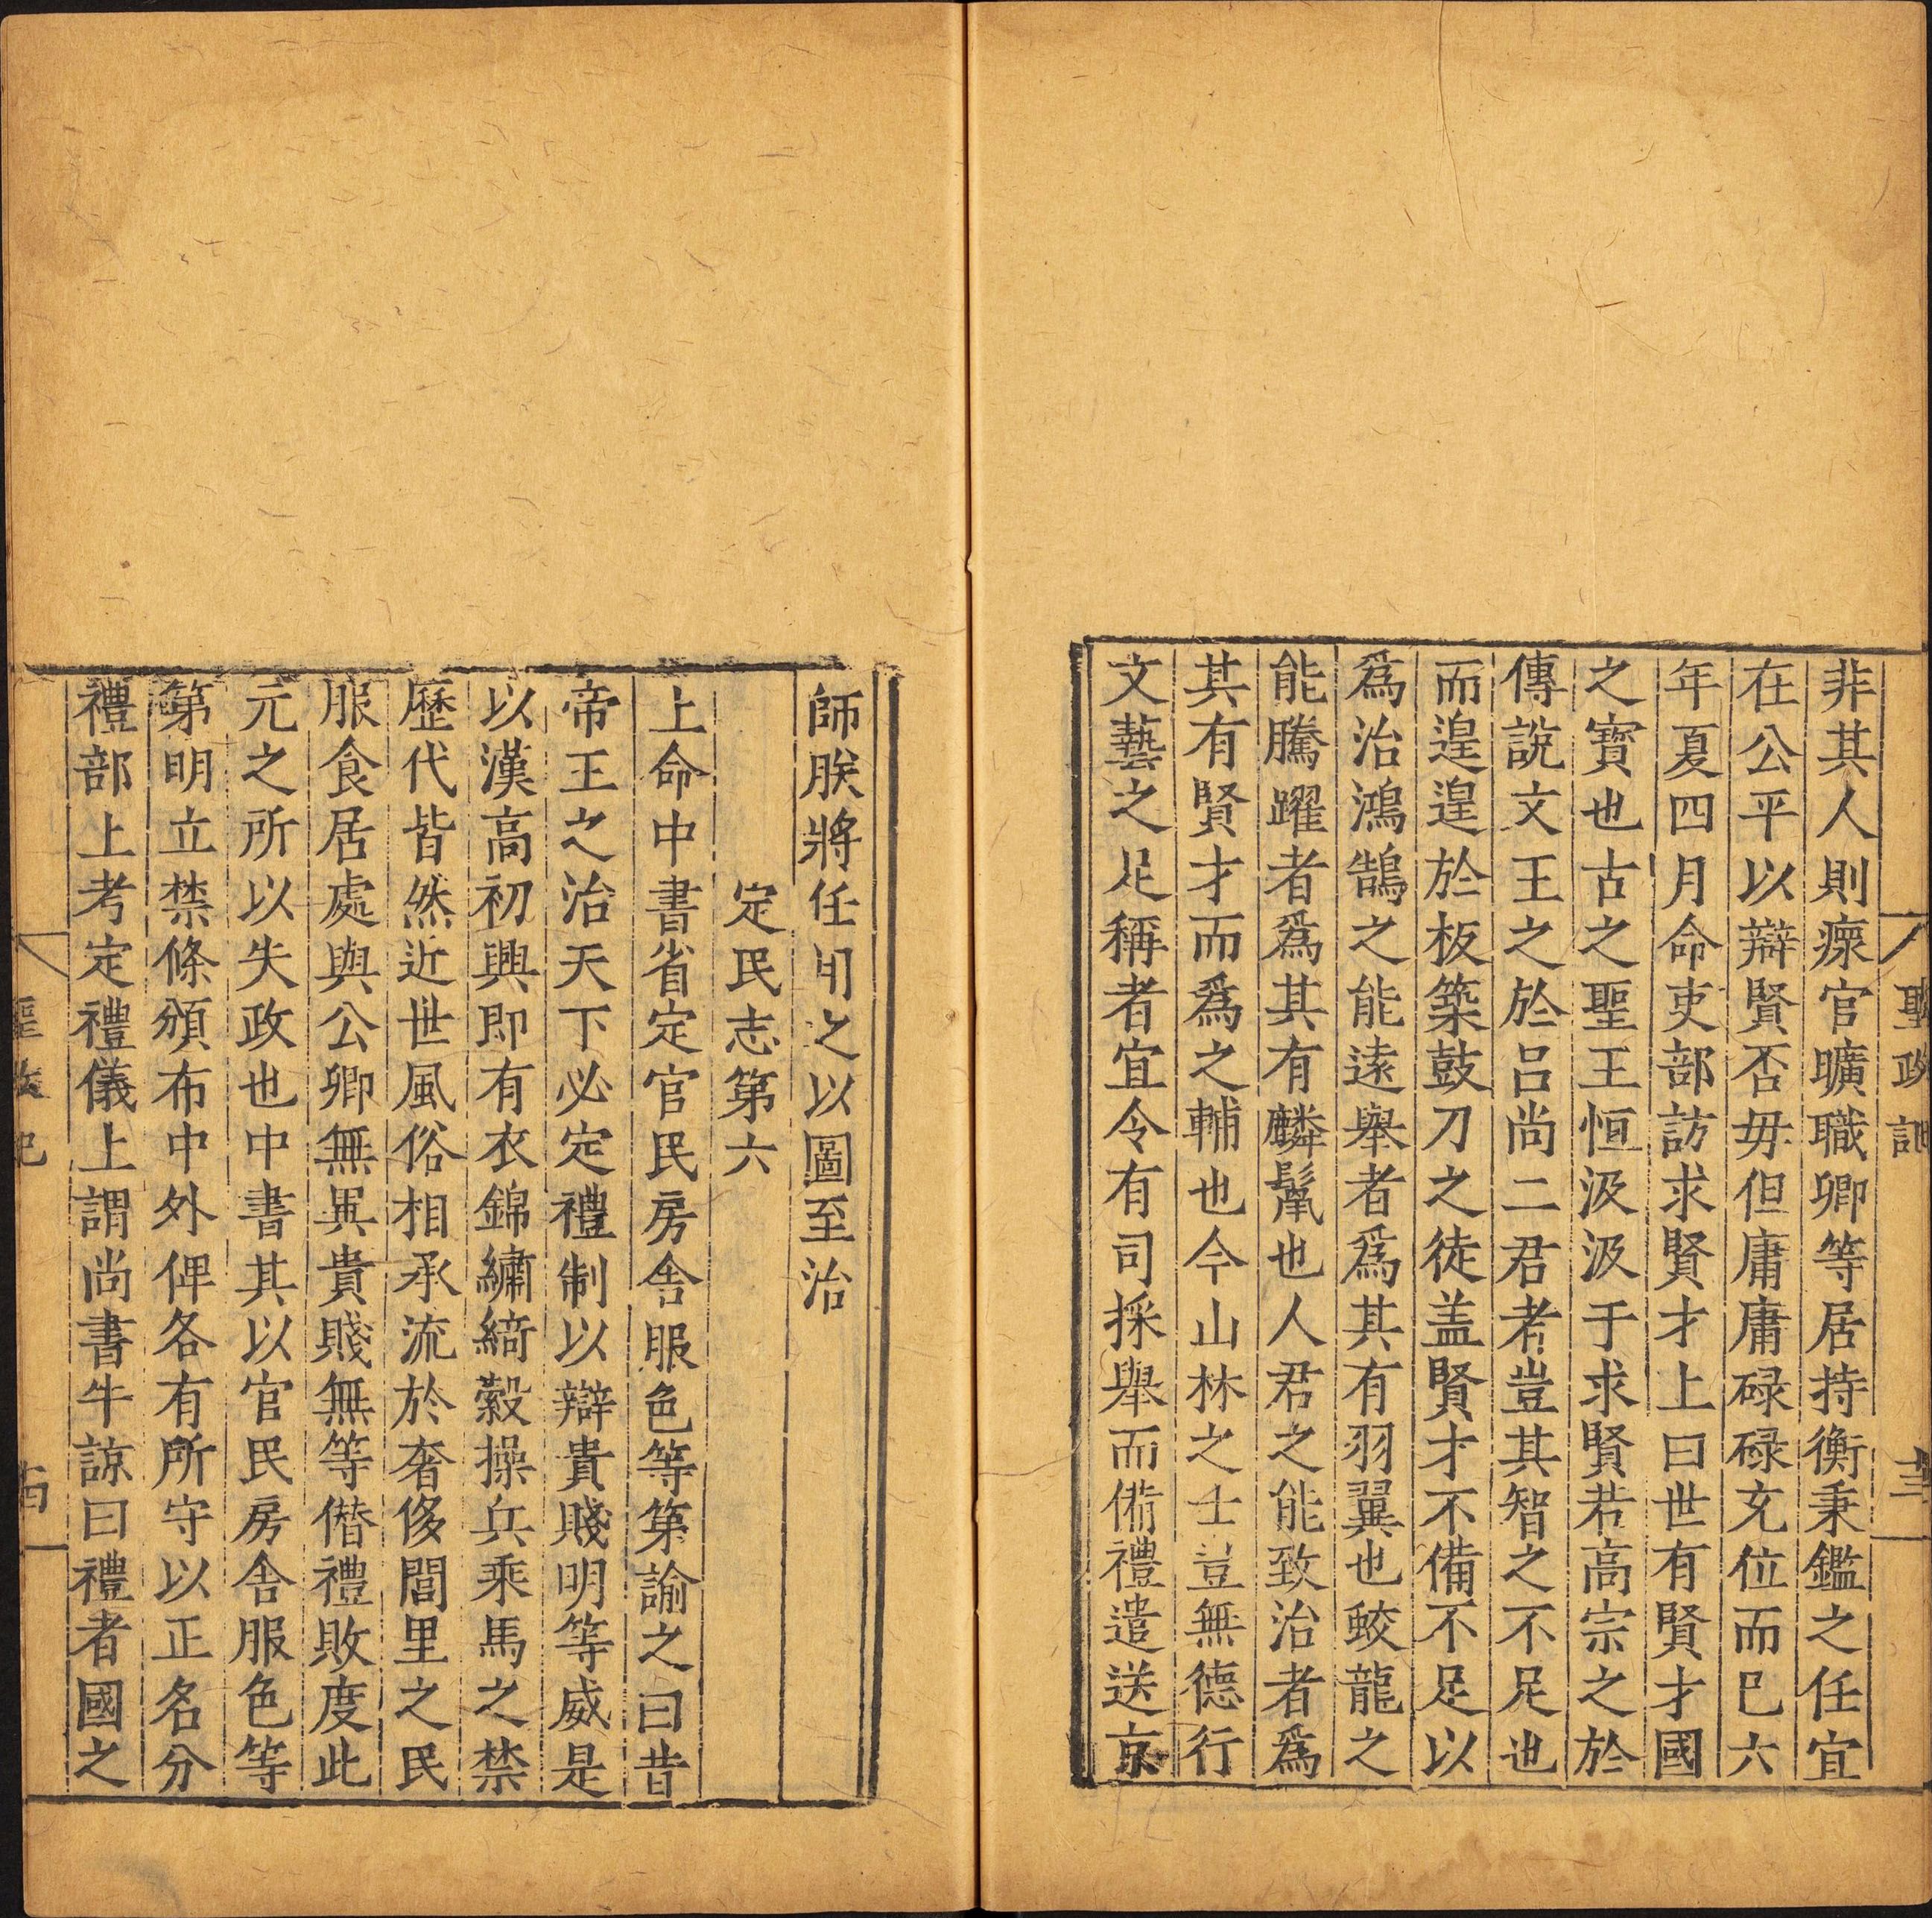 聖政記
十三
非其人則瘝官曠職卿等居持衡秉鑑之任宜
在公平以辯賢否毋但庸庸碌碌充位而巳六
年夏四月命吏部訪求賢才上曰世有賢才國
之寳也古之聖王恒汲汲于求賢若高宗之於
傳說文王之於呂尚二君者豈其智之不足也
而遑遑於板築鼓刀之徒盖賢才不備不足以
爲治鴻鵠之能逺舉者爲其有羽翼也蛟龍之
能騰躍者爲其有鱗鬣也人君之能致治者爲
其有賢才而爲之輔也今山林之士豈無德行
文藝之足稱者宜令有司採舉而俻禮遣送京
師朕將任用之以圖至治
定民志第六
上命中書省定官民房舍服色等第諭之曰昔
帝王之治天下必定禮制以辯貴賤明等威是
以漢高初興即有衣錦繡綺縠操兵乘馬之禁
歷代皆然近世風俗相承流於奢侈閭里之民
服食居處與公卿無異貴賤無等僣禮敗度此
元之所以失政也中書其以官民房舍服色等
第明立禁條頒布中外俾各有所守以正名分
禮部上考定禮儀上謂尚書牛諒曰禮者國之
聖政記
十四